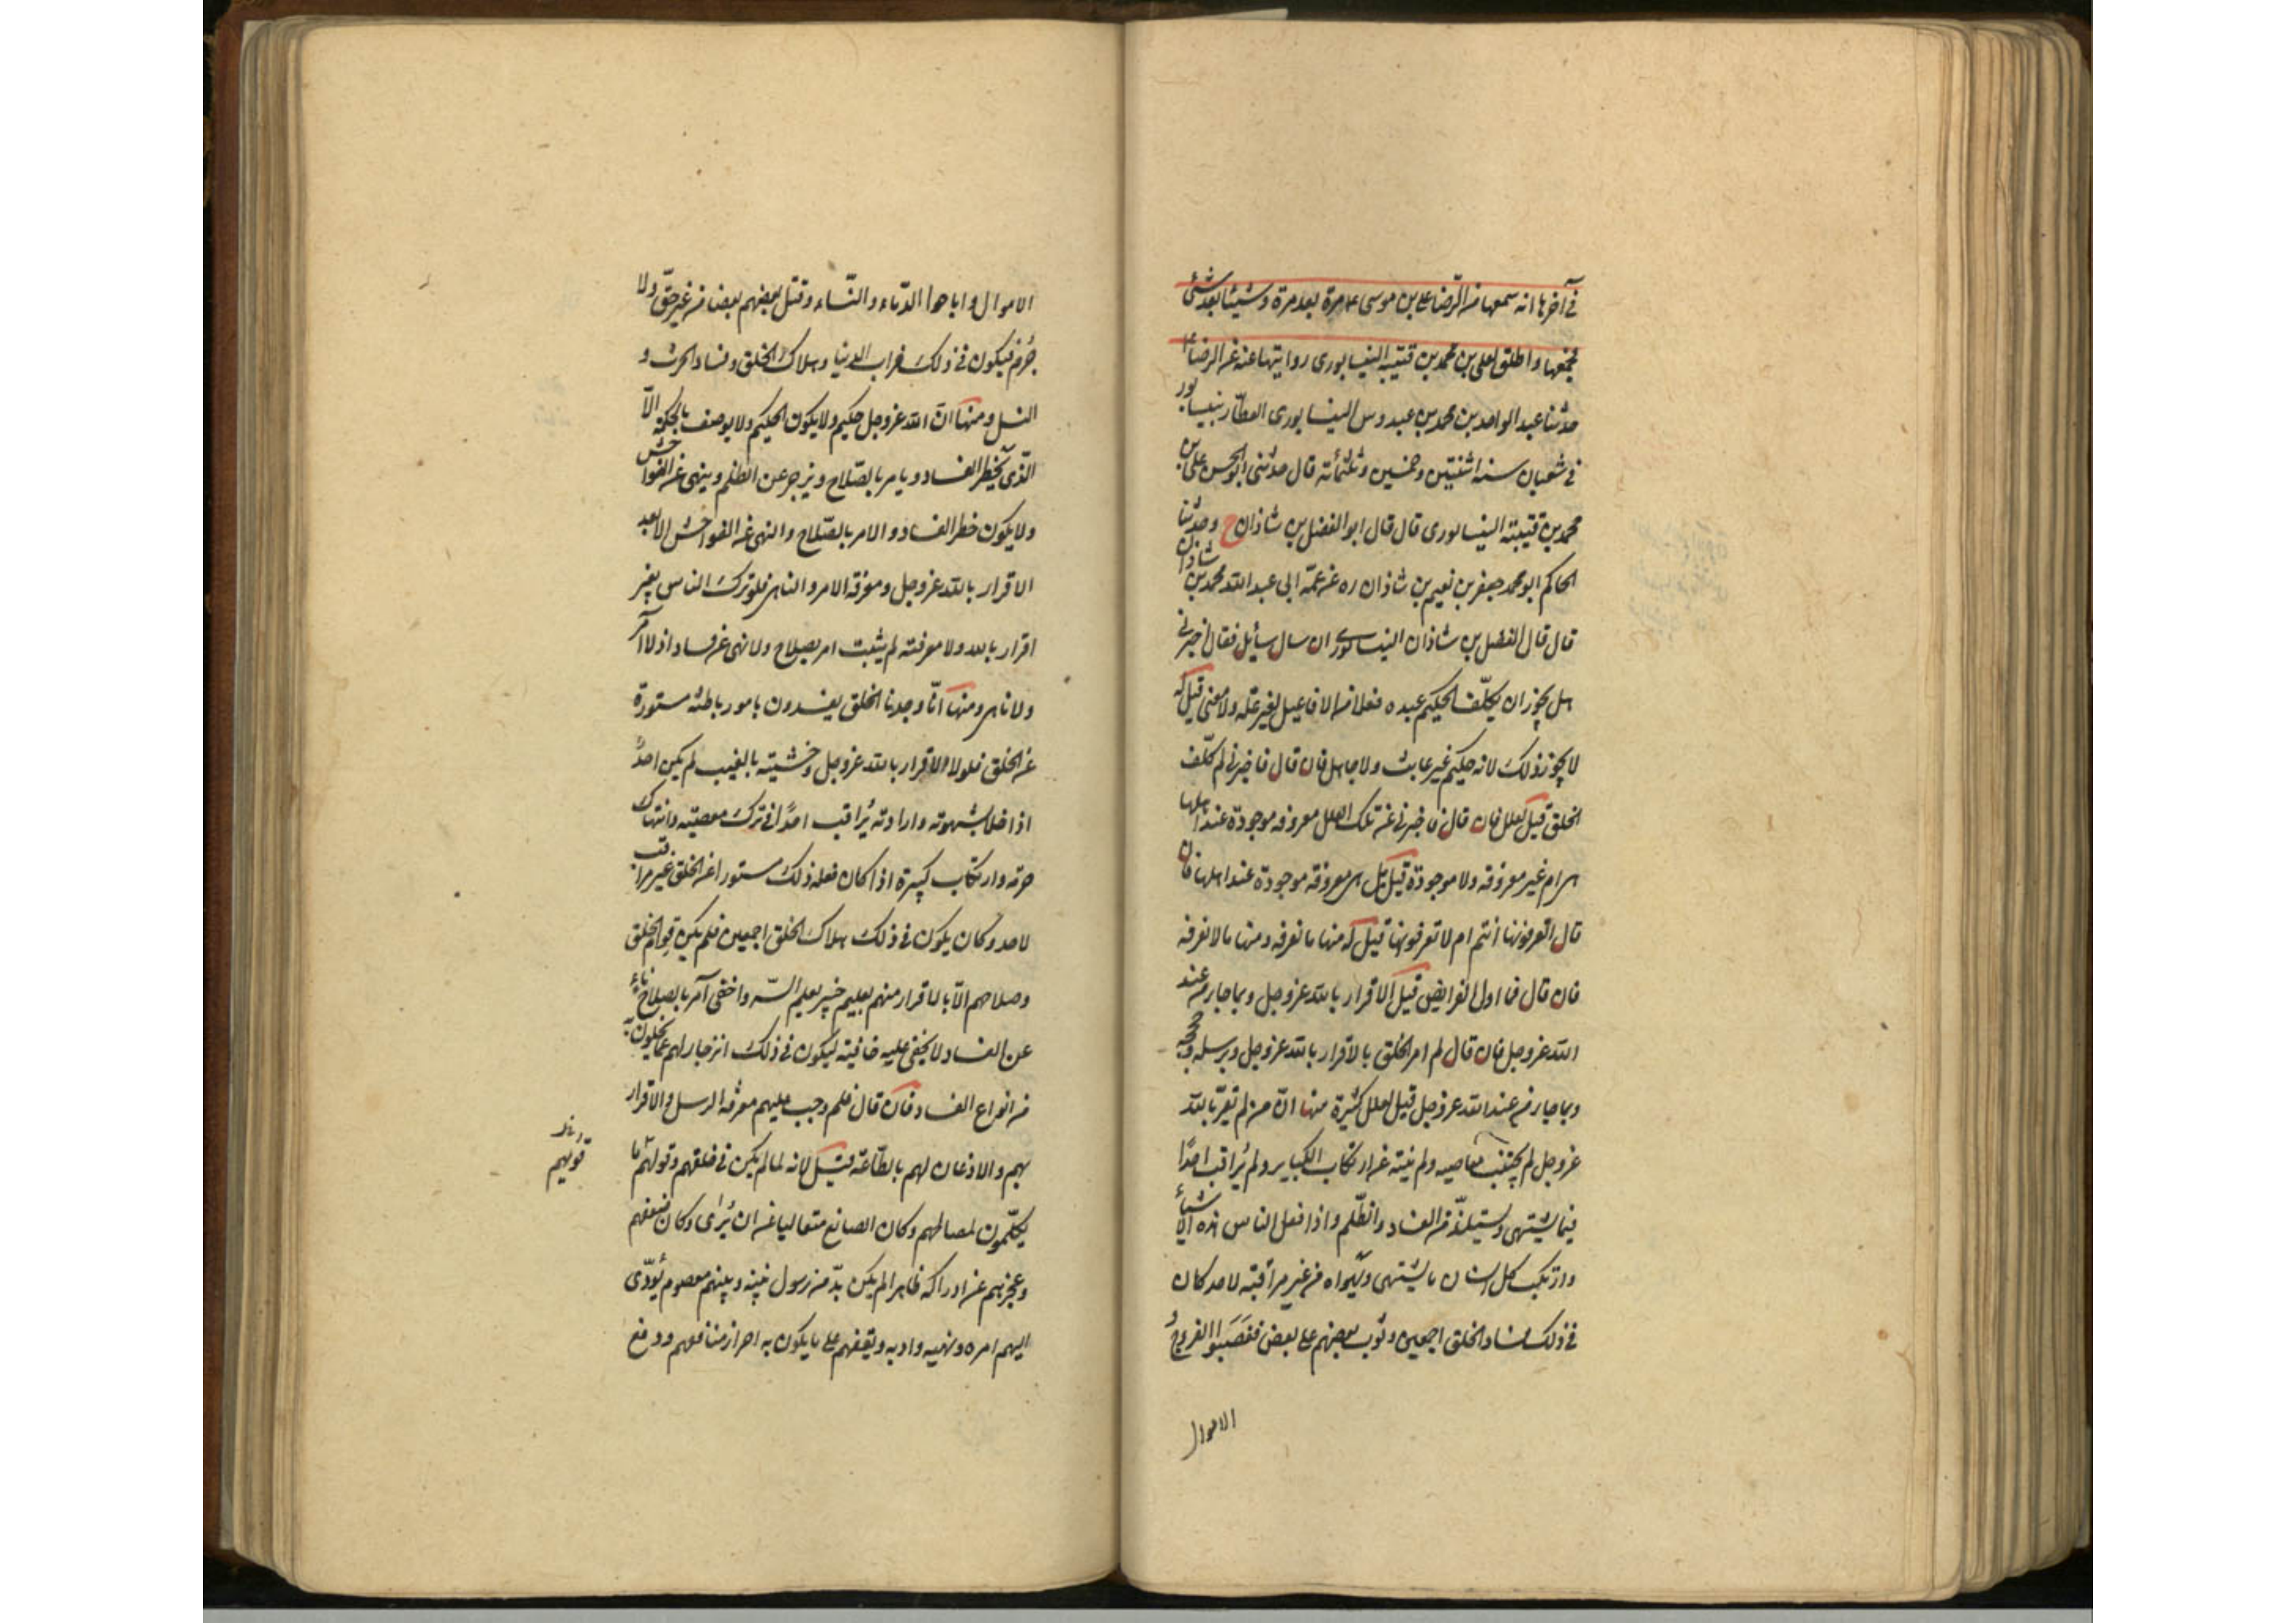 في آخرها انه سمعها من الرضا علي بن موسى ع مرة بعد مرة وشيئا بعد شئ
فجمعها واطلق لعلي بن محمد بن قتيبة النيسابوري روايتها عنه عن الرضا ع
حدثنا عبد الواحد بن محمد بن عبدوس النيسابوري العطار بنيسابور
في شعبان سنة اثنتين وخمسين وثلثمائة قال حدثني ابو الحسن علي بن
محمد بن قتيبة النيسابوري قال قال ابو الفضل بن شاذان ح وحدثنا
الحاكم ابو محمد جعفر بن نعيم بن شاذان ره عن عمه ابي عبد الله محمد بن شاذان
قال قال الفضل بن شاذان النيسابوري ان سال سائل فقال اخبرني
هل يجوز ان يكلف الحكيم عبده فعلا من الافاعيل لغير علة ولا معنى قيل له
لا يجوز ذلك لانه حكيم غير عابث ولا جاهل فان قال فاخبرني لم كلف
الخلق قيل لعلل فان قال فاخبرني عن تلك العلل معروفة موجودة عند اهلها
هي ام غير معروفة ولا موجودة قيل بل هي معروفة موجودة عند اهلها فان
قال اتعرفونها انتم ام لا تعرفونها قيل له منها ما نعرفه ومنها ما لا نعرفه
فان قال فما اول الفرايض قيل الاقرار بالله عز وجل وبما جاء من عند
الله عز وجل فان قال لم امر الخلق بالاقرار بالله عز وجل وبرسله وحججه
وبما جاء من عند الله عز وجل قيل لعلل كثيرة منها ان من لم يقر بالله
عز وجل لم يجتنب معاصيه ولم ينته عن ارتكاب الكباير ولم يراقب احدا
فيما يشتهي ويستلذ من الفساد والظلم واذا فعل الناس هذه الاشياء
وارتكب كل انسان ما يشتهي ويهواه من غير مراقبة لاحد كان
في ذلك فساد الخلق اجمعين ووثوب بعضهم على بعض فغصبوا الفروج و
الاموال
الاموال واباحوا الدماء والنساء وقتل بعضهم بعضا من غير حق ولا
جرم فيكون في ذلك خراب الدنيا وهلاك الخلق وفساد الحرث و
النسل ومنها ان الله عز وجل حكيم ولا يكون الحكيم ولا يوصف بالحكمة الا
الذي يحظر الفساد ويامر بالصلاح ويزجر عن الظلم وينهى عن الفواحش
ولا يكون حظر الفساد والامر بالصلاح والنهي عن الفواحش الا بعد
الاقرار بالله عز وجل ومعرفة الامر والناهي فلو ترك الناس بغير
اقرار بالله ولا معرفته لم يثبت امر بصلاح ولا نهي عن فساد اذ لا آمر
ولا ناهي ومنها انا وجدنا الخلق يفسدون بامور باطنة مستورة
عن الخلق فلولا الاقرار بالله عز وجل وخشيته بالغيب لم يكن احد
اذا خلا بشهوته وارادته يراقب احدا في ترك معصيته وانتهاك
حرمة وارتكاب كبيرة اذا كان فعله ذلك مستورا عن الخلق غير مراقب
لاحد وكان يكون في ذلك هلاك الخلق اجمعين فلم يكن قوام الخلق
وصلاحهم الا بالاقرار منهم بعليم خبير يعلم السر واخفى آمر بالصلاح ناه
عن الفساد لا يخفى عليه خافية ليكون في ذلك انزجار لهم عما يخلون به
من انواع الفساد فان قال فلم وجب عليهم معرفة الرسل والاقرار
بهم والاذعان لهم بالطاعة قيل لانه لما لم يكن في خلقهم وقولهم ما
قويهم
يكلمون لمصالحهم وكان الصانع متعاليا عن ان يرى وكان ضعفهم
وعجزهم عن ادراكه ظاهرا لم يكن بد من رسول بينه وبينهم معصوم يؤدي
اليهم امره ونهيه وادبه ويقفهم على ما يكون به احراز منافعهم ودفع